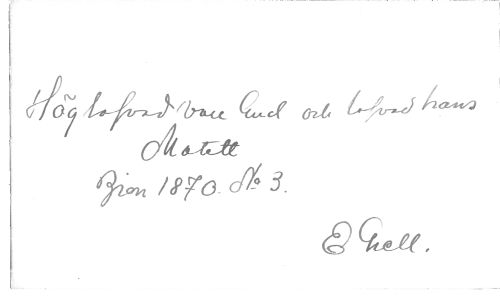 Höglofvad vare Gud och lofvad hans
Motett
Zion 1870. No 3.
E Grell.